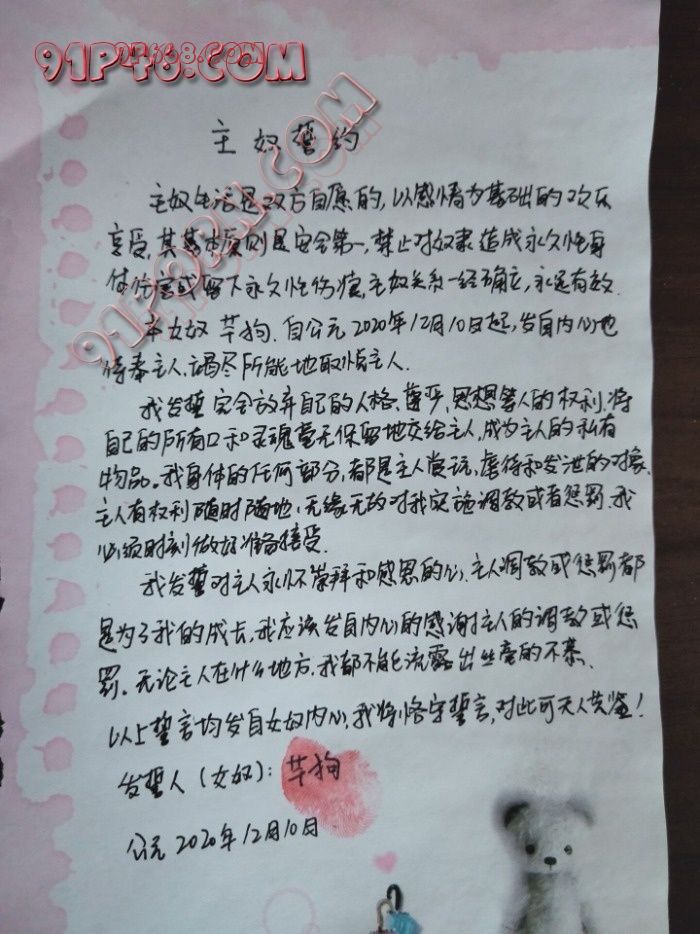 91P48.COM
91PORN.COM
主奴誓约
主奴生活是双方自愿的，以感情为基础的欢乐
享受，其基本原则是安全第一，禁止对奴隶造成永久性身
体伤害或留下永久性伤痕，主奴关系一经确立，永远有效．
本女奴 芊狗．自公元2020年12月10日起，发自内心地
侍奉主人，竭尽所能地取悦主人．
我发誓完全放弃自己的人格、尊严、思想等人的权利，将
自己的所有口和灵魂毫无保留地交给主人，成为主人的私有
物品。我身体的任何部分，都是主人赏玩，虐待和发泄的对象，
主人有权利随时随地，无缘无故对我实施调教或者惩罚．我
必须时刻做好准备接受．
我发誓对主人永怀崇拜和感恩的心，主人调教或惩罚都
是为了我的成长，我应该发自内心的感谢主人的调教或惩
罚。无论主人在什么地方，我都不能流露出丝毫的不恭．
以上誓言均发自女奴内心，我将恪守誓言，对此可天人共鉴！
发誓人（女奴）：芊狗
公元2020年12月10日